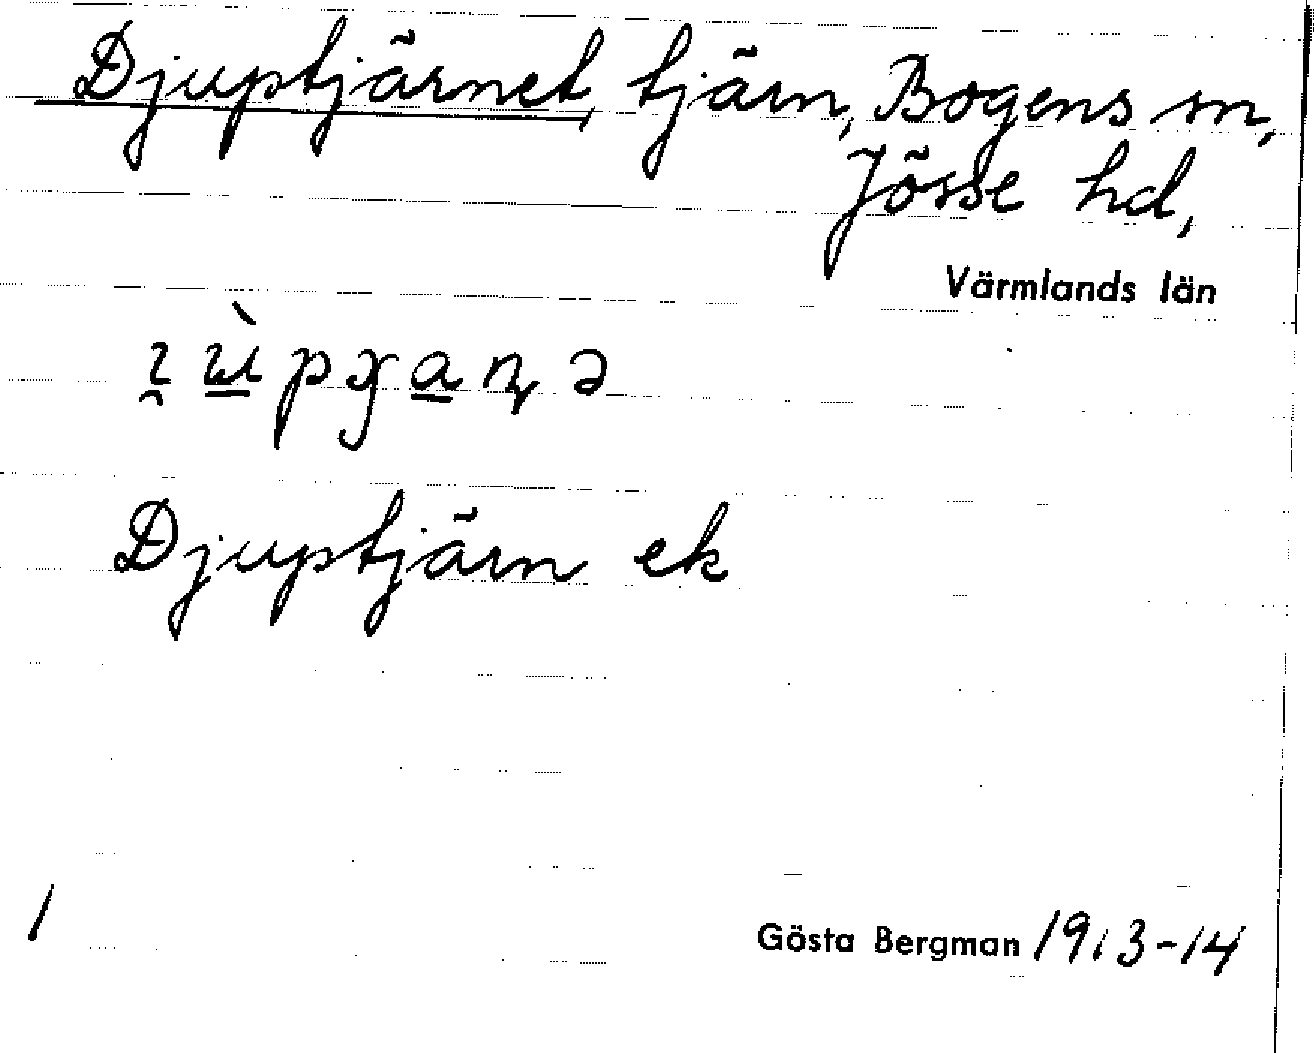 Djuptjärnet tjärn, Bogens sn,
Jösse hd,
Värmlands län
Djuptjärn ek
1
Gösta Bergman 1913-14